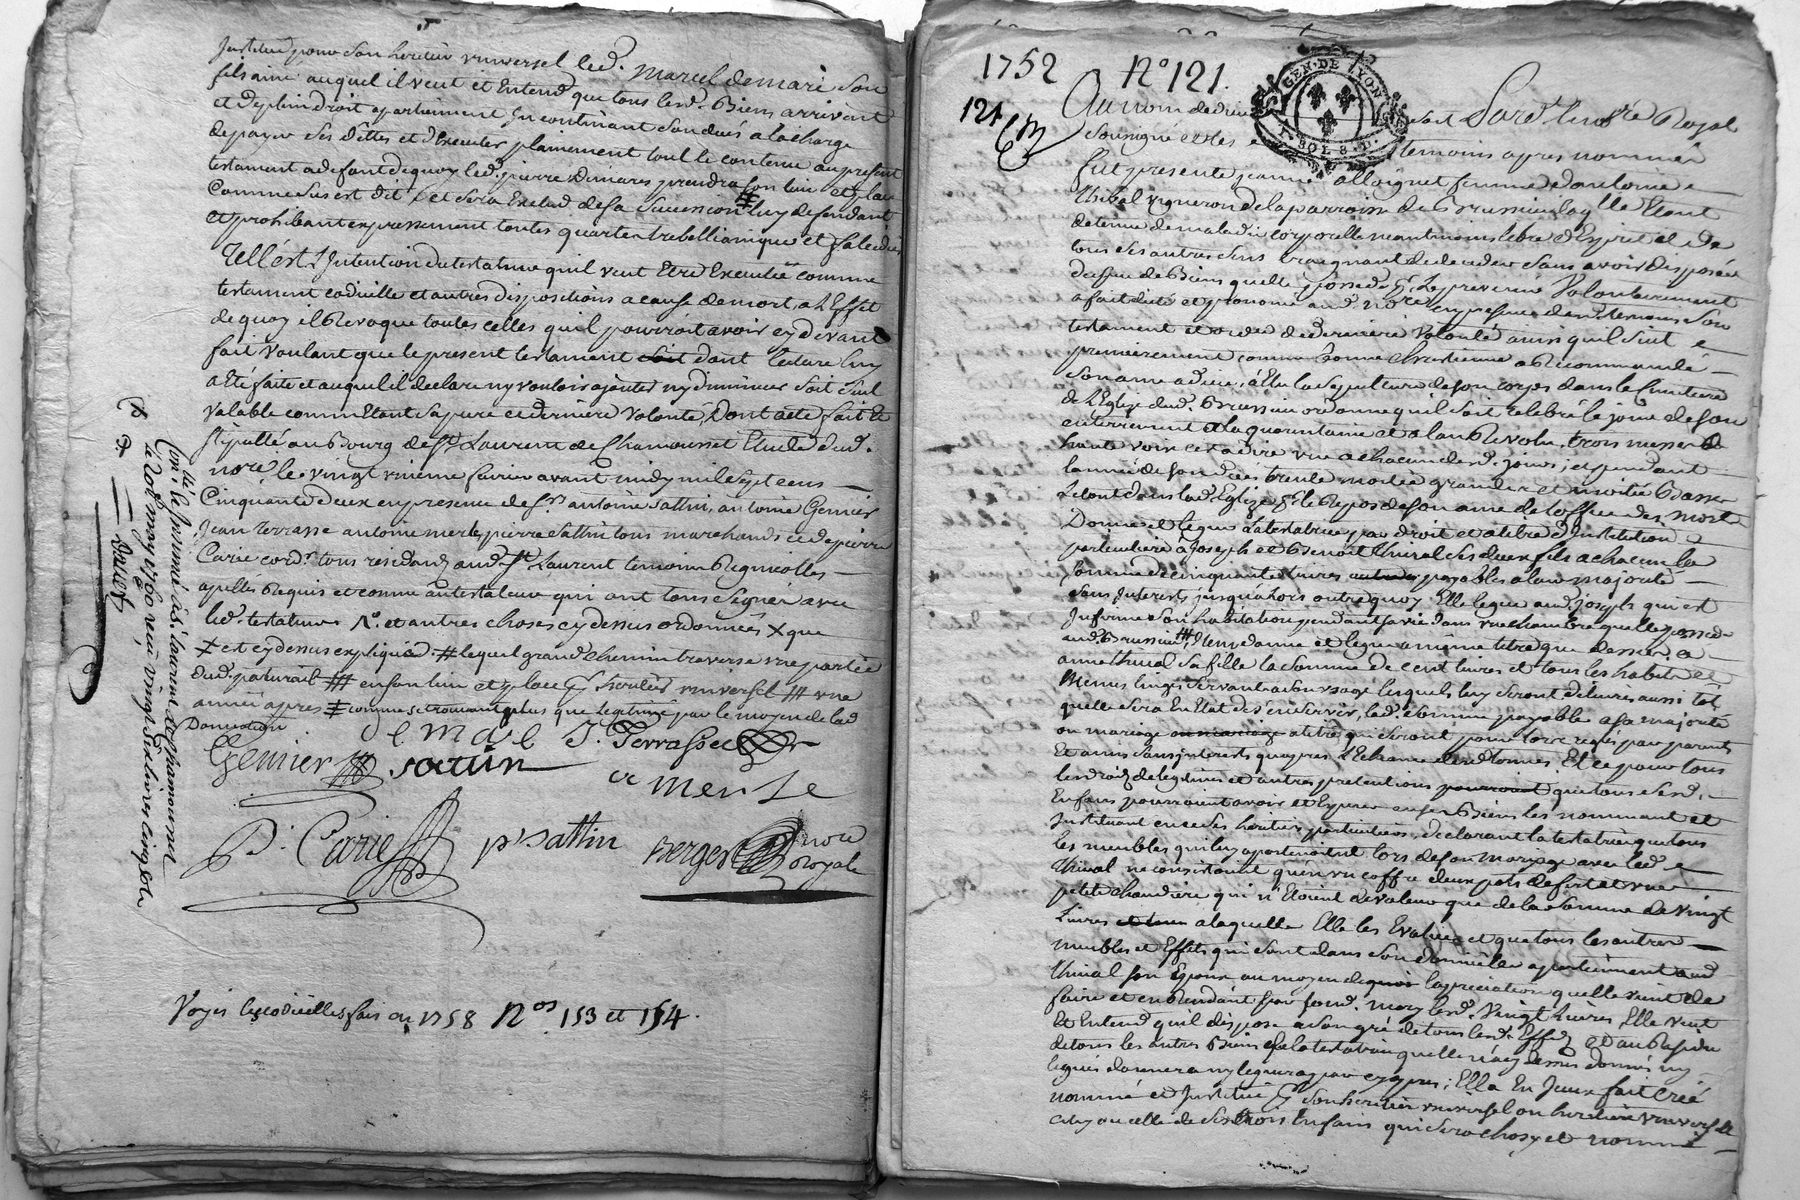 Institue pour son heritier universel led. Marcel demare son
fils ainé auquel il veut et Entend que tous lesd. Biens arrivent
et de plein droit apartiennent Incontinant son deces a la charge
de payer ses dettes et d'Executer plainement tout le contenu au present
testament a defaut de quoy led. pierre Demares prendra son lieu et place
comme sus est dit et sera Exclud de sa succession # luy defendant
et prohibant expressement toutes quartes trebellianique et falcidie
Telle est l'Intention du testateur qu'il veut Etre Executée comme
testament codicille et autres dispositions a cause de mort, a L'Effet
de quoy il Revoque toutes celles qu'il pourroit avoir cy devant
fait voulant que le present testament soit dont lecture luy
a Eté faite et auquel il declare ny vouloir ajouter ny diminuer soit seul
valable comme Etant sa pure et derniere volonté, Dont acte fait et
stipullé au Bourg de St. Laurent de Chamousset Etude dud.
nore. le vingt unieme fevrier avant midy mil sept cens
Cinquante deux en presence de srs. antoine sattin, antoine Genier
Jean terrasse antoine merle, pierre sattin tous marchands et de pierre
Carie cordr. tous residands aud. St. Laurent temoins Regnicolles
apellés Requis et comme au testateur qui ont tous signé avec
led. testateur et autres choses cy dessus ordonnées X que
X et cy dessus expliquée # lequel grand chemin traverse une partie
dud. paturail ## en son lieu et place heritier universel ## une
année apres # comme se trouvant plus que Legitimé par le moyen de lad
Donnation
demare J. Terrasse
Genier sattin
a merle
P. Carie p. sattin Berger nore
Royal
Voyés les codicilles fais en 1758 Nos. 153 et 154.
Conlé Insinué à St. laurent de Chamousset
le 20e. may 1760 reçu vingt six livres cinq sols
Duvert
1752 No 121.
GEN. DE LYON
SOLS
121
Au nom de dieu soit Pard. le nore. Royal
Sousigné et les temoins apres nommés
fut presente jeanne alloignet femme d'antoine
thival vigneron de la parroisse de Brussieu laquelle Etant
detenue de maladie corporelle neantmoins libre d'Esprit et de
tous ses autres sens craignant de deceder sans avoir disposée
du peu de Biens quelle possede
a fait dicté et prononcé aud. nore. en presence desd. temoins son
testament et ordre de derniere volonté ainsi qu'il suit
premierement comme bonne chretienne a Recommandé
son ame a dieu, a Elu la sepulture de son corps dans le cimetiere
de l'Eglize dud. Brussieu ordonne qu'il soit celebré le jour de son
enterrement a la quarantaine et a l'an Revolu, trois messes
haute voix cest a dire une a chacun desd. jours; et pendant
lannée de son deces trente messes grandes et moitié Basses
Le tout dans lad. Eglize pr. le Repos de son ame de l'office des morts
Donne et legue la testatrice par droit et a titre d'Institution
particuliere a joseph et Benoit thival ses deux fils a chacun la
somme de cinquante livres payables a leur majorité
sans Interets jusqu'alors outre quoy Elle legue aud. joseph qui est
Infirme son habitation pendant sa vie dans une chambre quelle possede
aud. Brussieu ## Item donne et legue a meme titre que dessus a
anne thival sa fille la somme de cent livres et tous les habits et
menus linges servant a son usage lesquels luy seront delivrés aussi tôt
quelle sera En Etat de s'en servir, lad. somme payable a sa majorité
ou mariage
Et amis sans interets qu'apres l'Echeance desd. termes. Et ce pour tous
les droits de legitime et autres pretentions que tous sesd.
Enfans pourroient avoir et Esperer en ses Biens les nommant et
Instituant en ce ses heritiers particuliers, declarant la testatrice que tous
les meubles qui luy apartenoient lors de son mariage avec led.
thival ne consistoient qu'en un coffre deux pots de fert et une
petite chaudiere qui n'Etoient de valeur que de la somme de vingt
Livres a laquelle Elle les Evalue et que tous les autres
meubles et Effets qui sont dans son domicille apartiennent aud
thival son Epoux au moyen de quoy lapreciation quelle vient de
faire et en Rendant par sond. mary lesd. vingt livres Elle veut
Et Entend qu'il dispose a son gré de tous lesd. Effets Et au Residu
de tous les autres Biens de la testatrice quelle n'a cy dessus donnés ny
legués donnera ny leguera par cy apres; Elle En Iceux fait Créé
nommé et Institué son heritier universel ou heritiere universelle
celuy ou celle de ses trois Enfans qui sera choisy et nommé